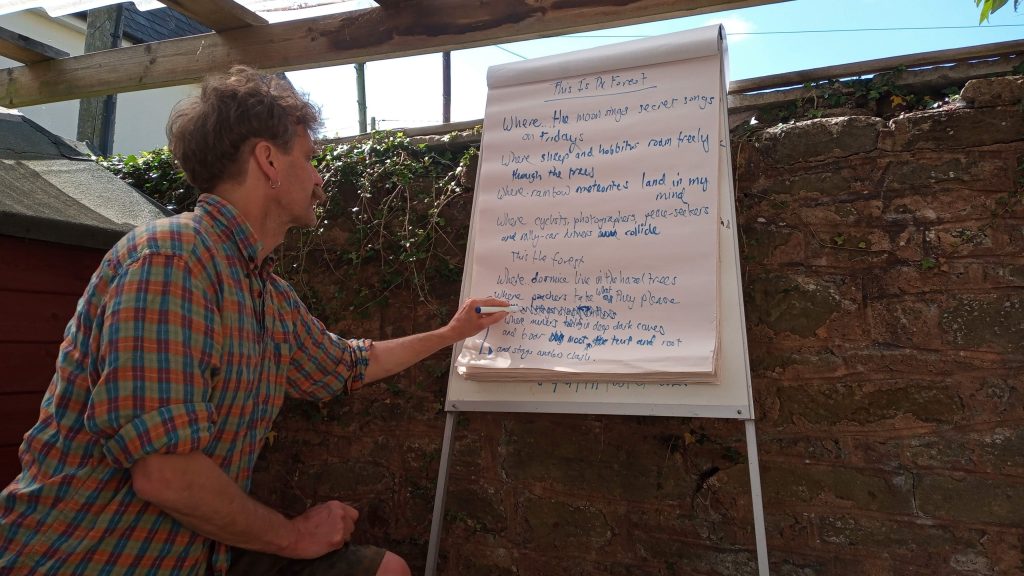 This Is The Forest
Where the moon sings secret songs
on Fridays
Where sheep and hobbits roam freely
through the trees
Where rainbow meteorites land in my
mind
Where cyclists, photographers, peace-seekers
and rally-car drivers collide
This the forest
Where dormice live in the hazel trees
Where poachers take what they please
Where miners toil in deep dark caves
and boar the turf and root
and stags antlers clash.